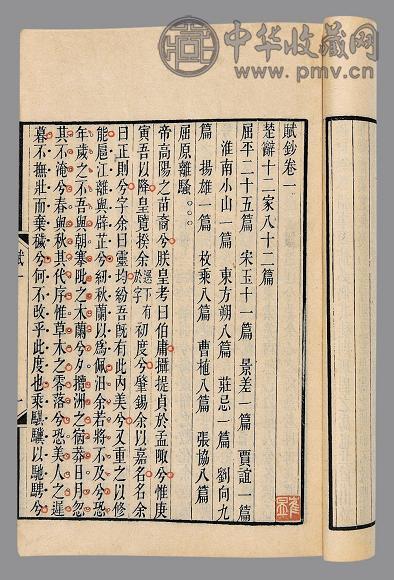 中华收藏网
www.pmv.cn
賦鈔卷一
楚辭十二家八十二篇
屈平二十五篇 宋玉十一篇 景差一篇 賈誼一篇
淮南小山一篇 東方朔八篇 莊忌一篇 劉向九
篇 揚雄一篇 枚乘八篇 曹植八篇 張協八篇
屈原離騷
帝高陽之苗裔兮朕皇考曰伯庸攝提貞於孟陬兮惟庚
寅吾以降皇覽揆余選下有於字初度兮肇錫余以嘉名名余
曰正則兮字余曰靈均紛吾旣有此內美兮又重之以修
能扈江離與辟芷兮紉秋蘭以爲佩汨余若將不及兮恐
年歲之不吾與朝搴阰之木蘭兮夕攬洲之宿莽日月忽
其不淹兮春與秋其代序惟草木之零落兮恐美人之遲
暮不撫壯而棄穢兮何不改乎此度也乘騏驥以馳騁兮